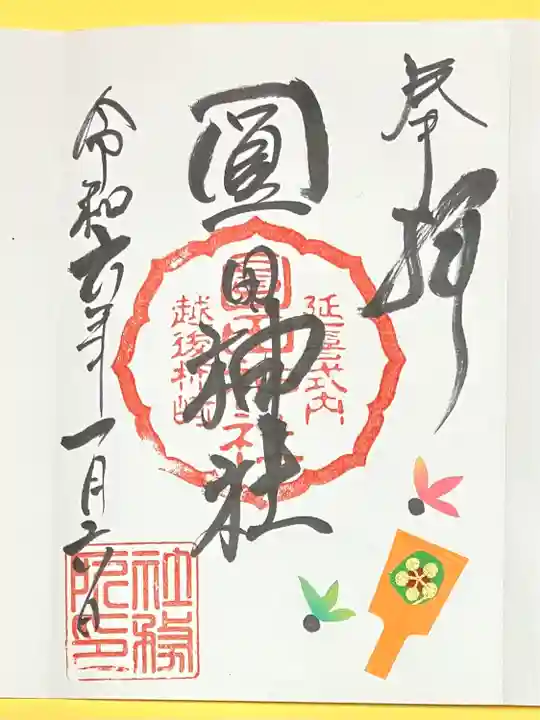 奉拝
圓田神社
延喜式内
圓田神社
越後柿崎
令和六年一月二日
社務